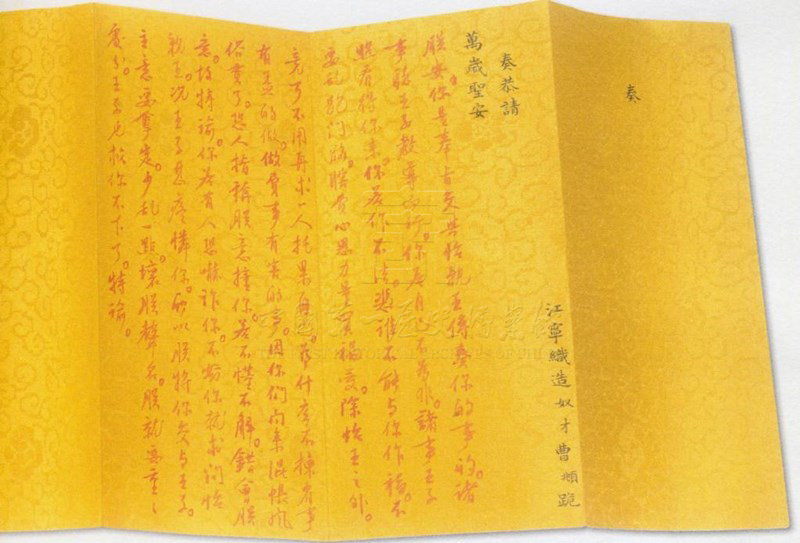 奏
江寧織造奴才曹頫跪
奏恭請
萬歲聖安
朕安。你是奉旨交與怡親王傳奏你的事的。諸
事聽王子教導而行。你若自己不為非。諸事王子
照看得你來。你若作不法。憑誰不能與你作福。不
要乱跑門路。瞎費心思力量買禍受。除怡王之外。
竟可不用再求一人托累自己。為什麼不揀省事
有益的做。做費事有害的事。因你們向來混帳風
俗貫了。恐人指稱朕意撞你。若不懂不解。錯會朕
意。故特諭你。若有人恐嚇詐你。不妨你就求問怡
親王。况王子甚疼憐你。所以朕將你交与王子。
主意要拿定。少乱一點。壞朕聲名。朕就要重々
處分。王子也救你不下了。特諭。
中国第一历史档案馆